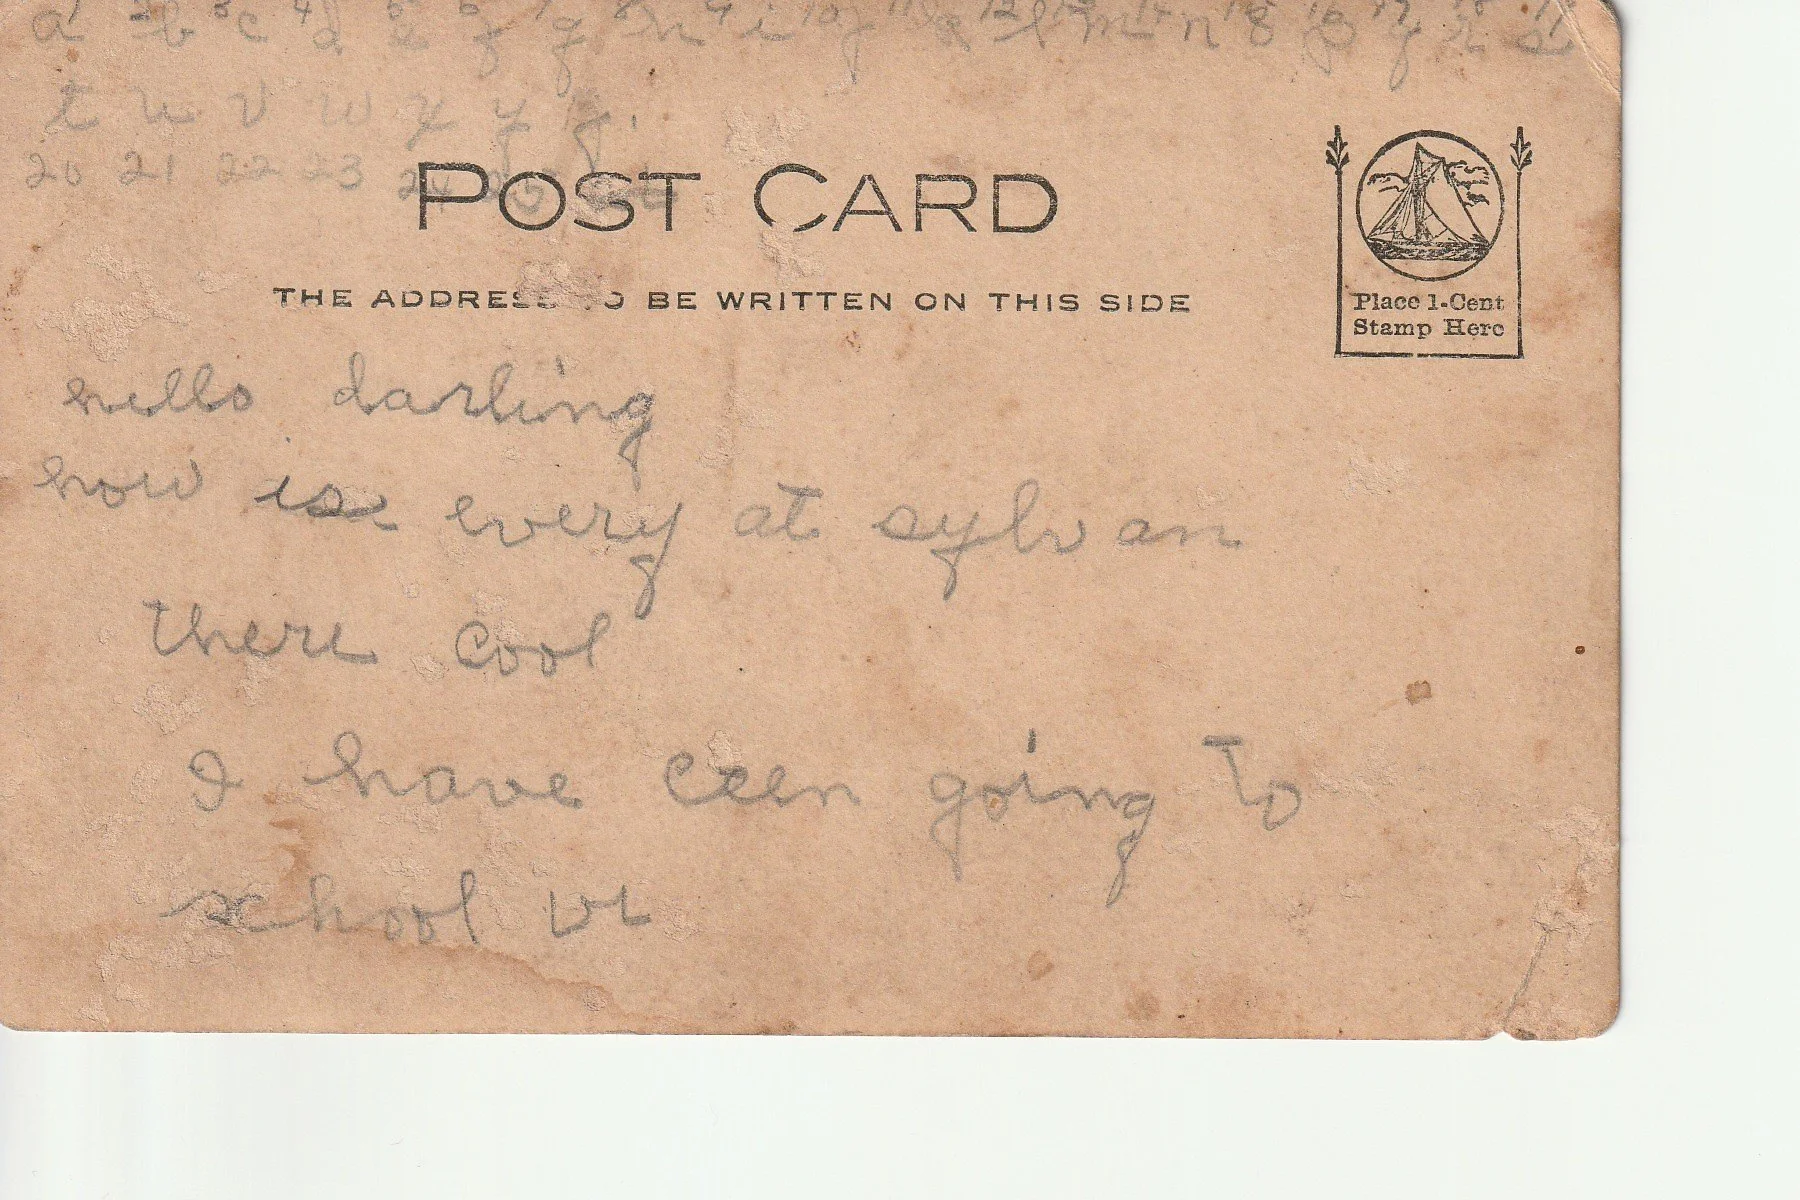 1 2 3 4 5 6 7 8 9 10 11 12 13 14 15 16 17 18 19
a b c d e f g h i j k l m n o p q r s
t u v w x y z.
20 21 22 23 24 25 26
POST CARD
THE ADDRESS TO BE WRITTEN ON THIS SIDE
Place 1-Cent
Stamp Here
hello darling
how is every at sylvan
there cool
I have ceen going to
school